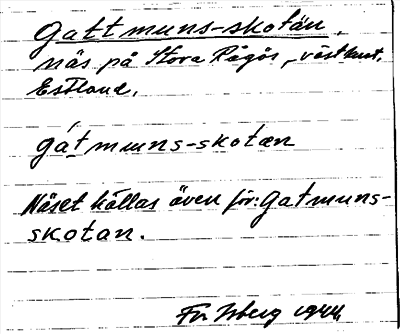 Gattmuns-skotän,
näs på Stora Rågös västkust,
Estland.
gátmuns-skotæn
Näset kallas även för: Gatmuns-
skotan.
1944